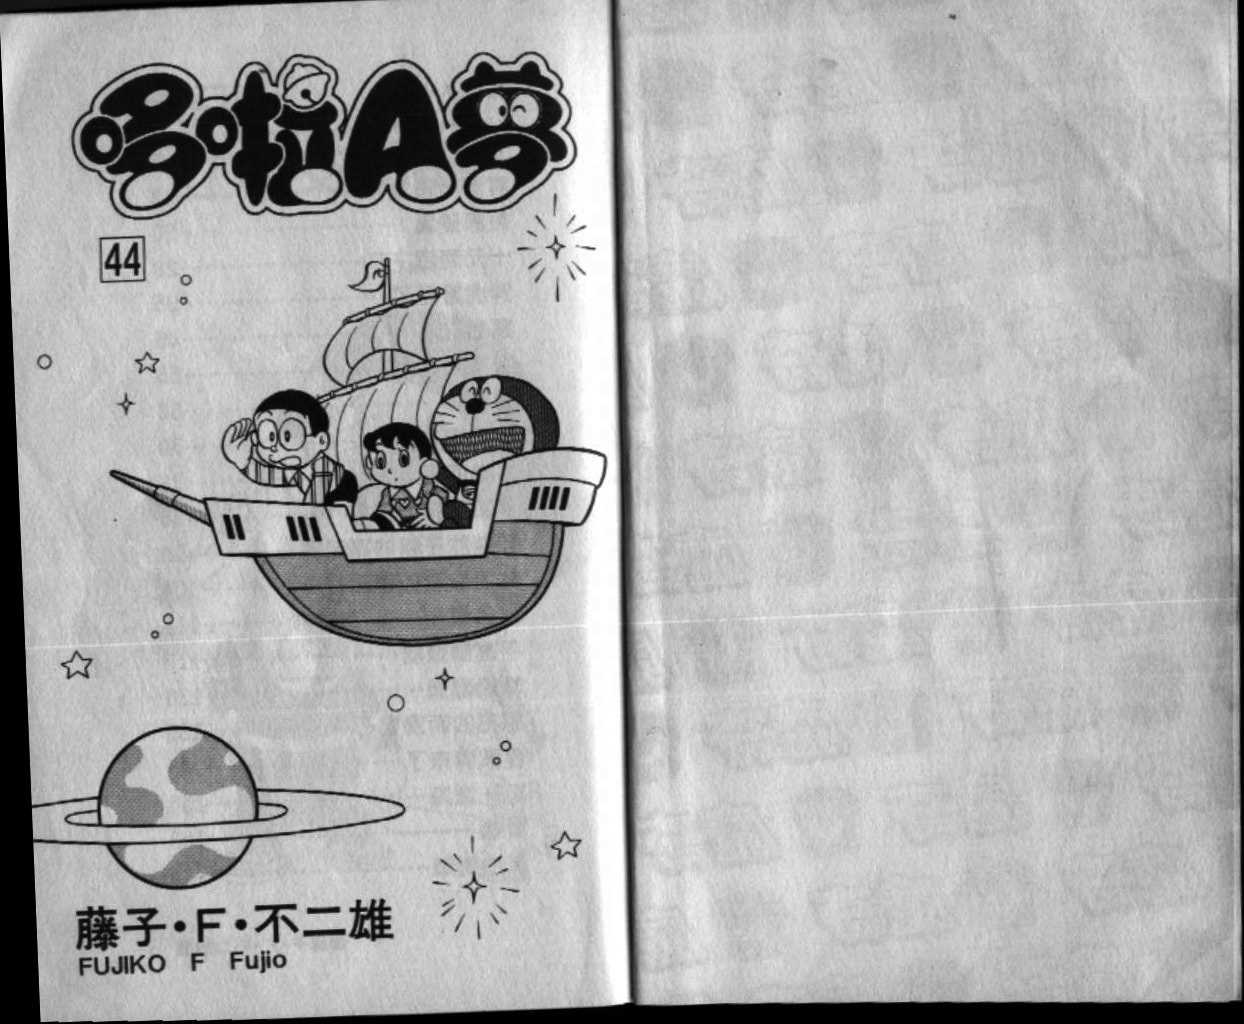 哆啦A夢
44
藤子·F·不二雄
FUJIKO F Fujio